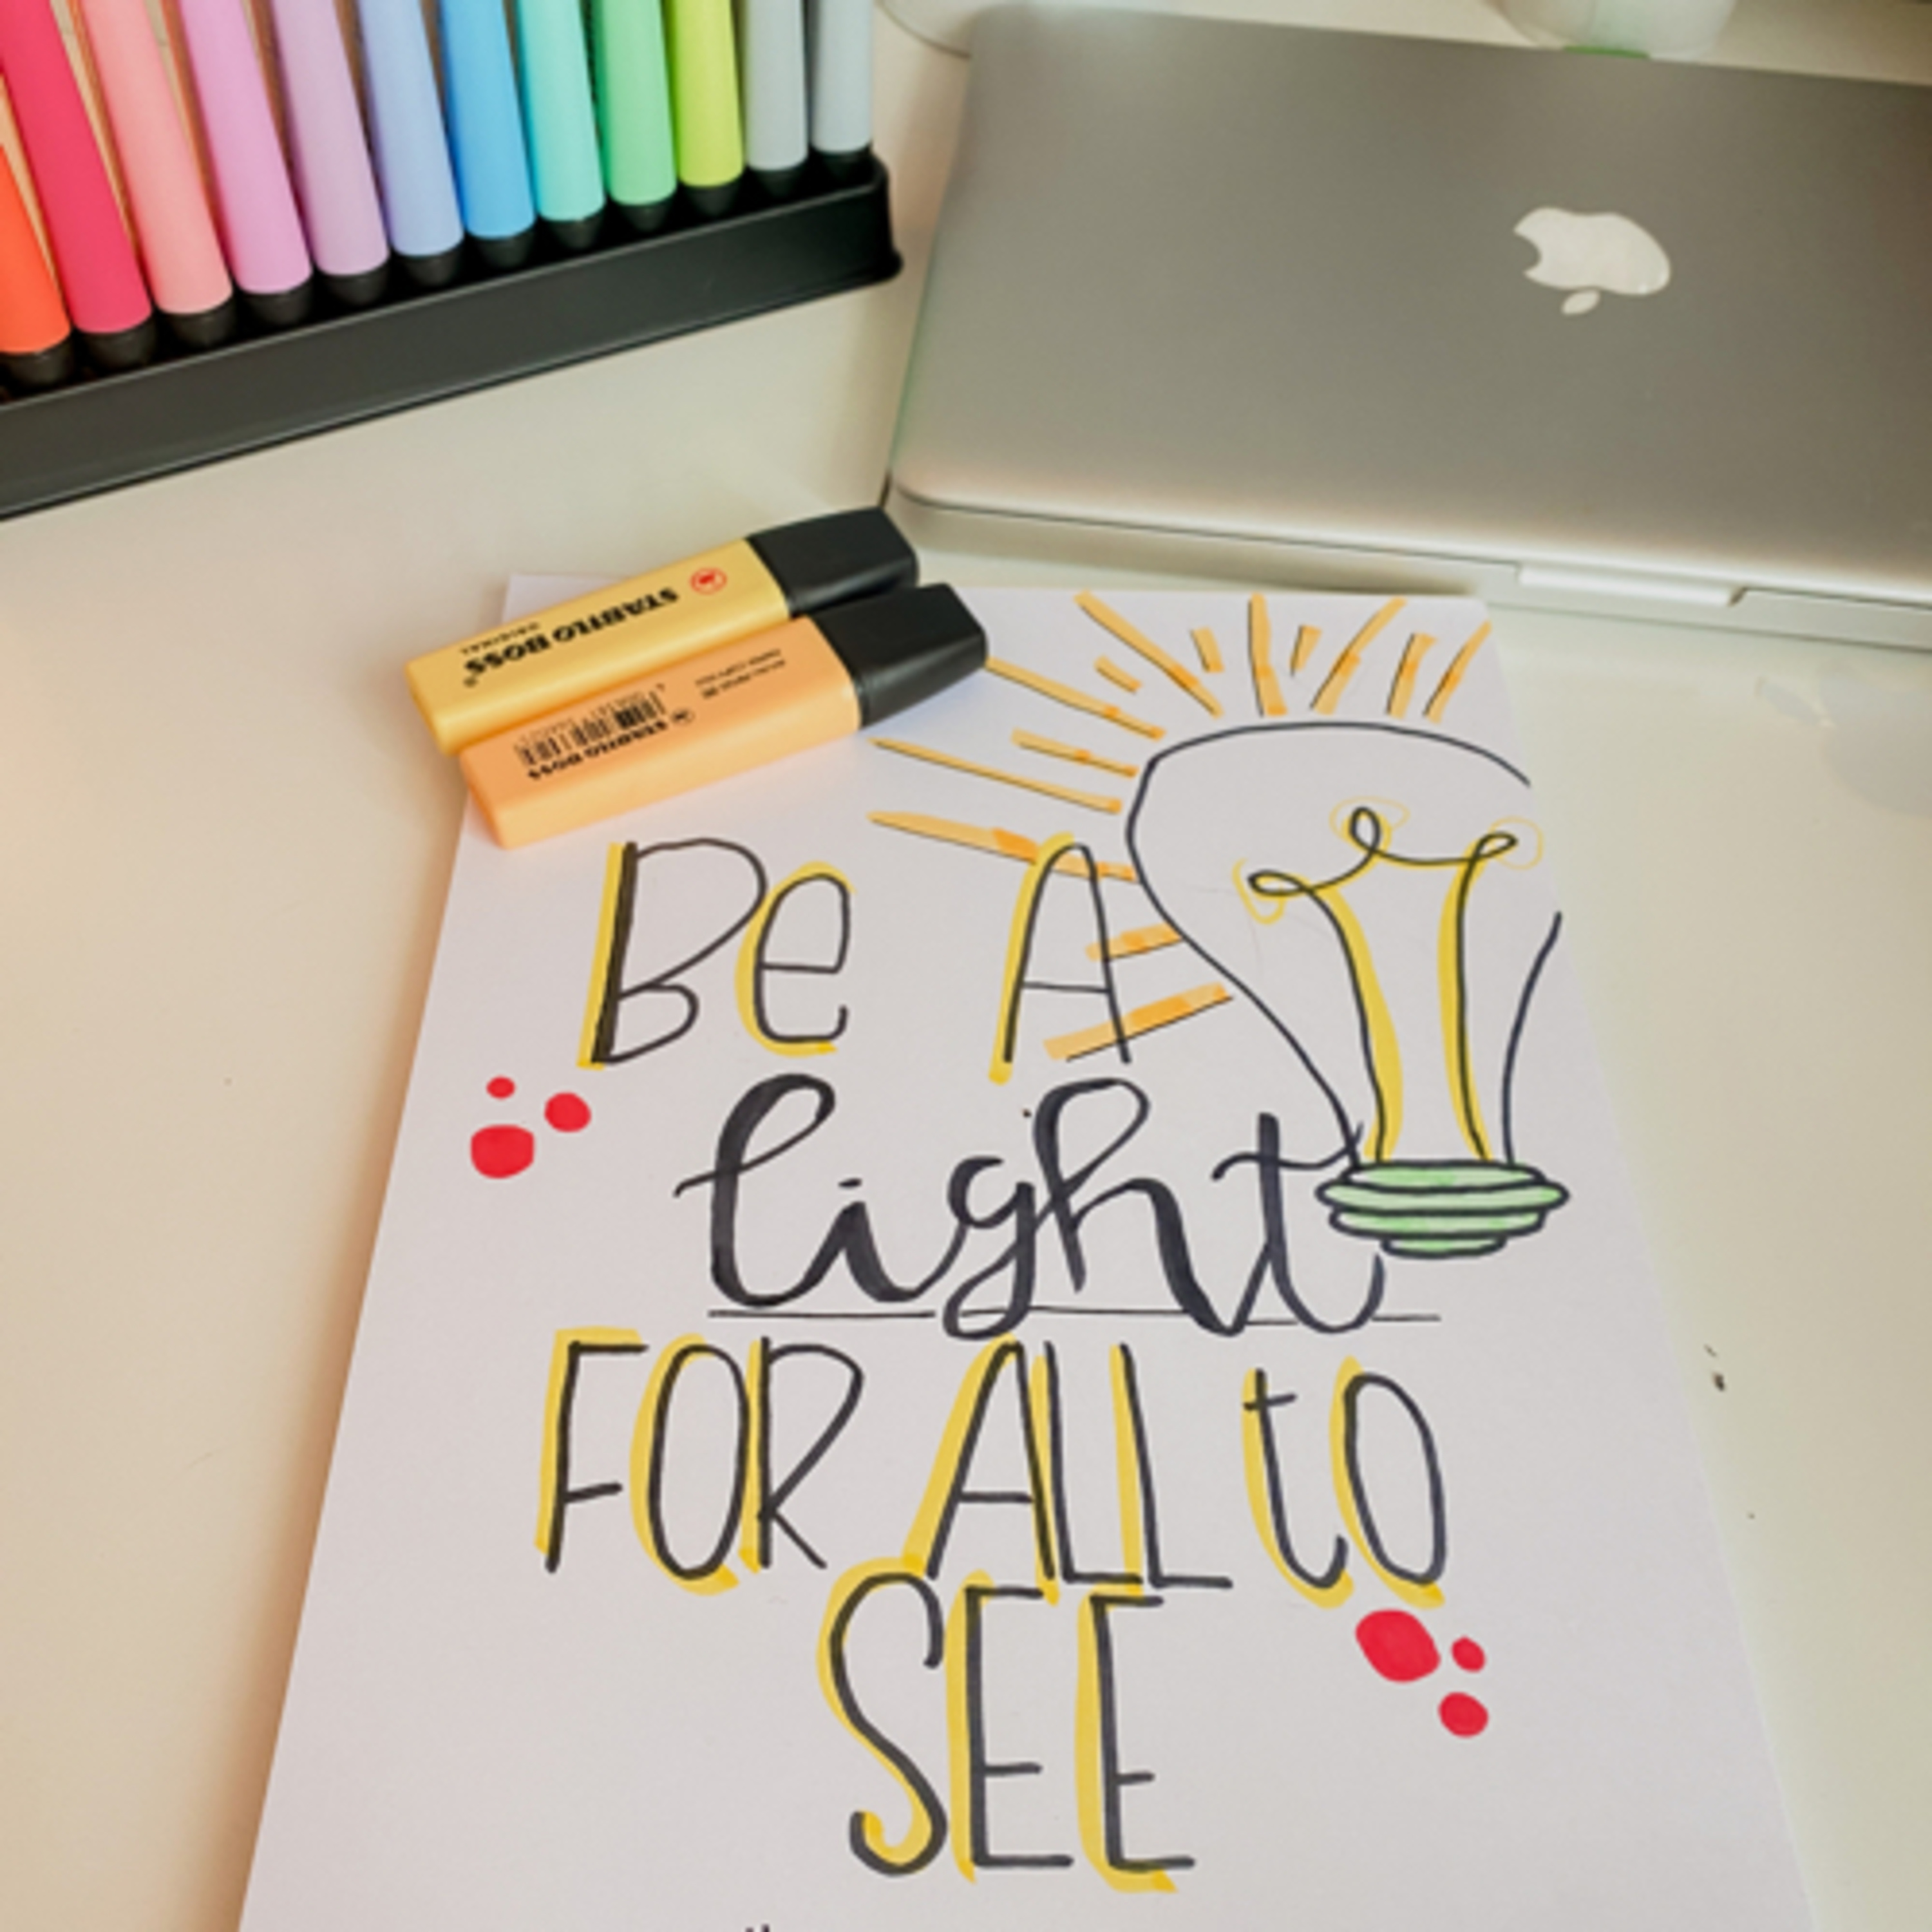 STABILO BOSS
ORIGINAL
STABILO BOSS
Be A
light
FOR ALL to
SEE